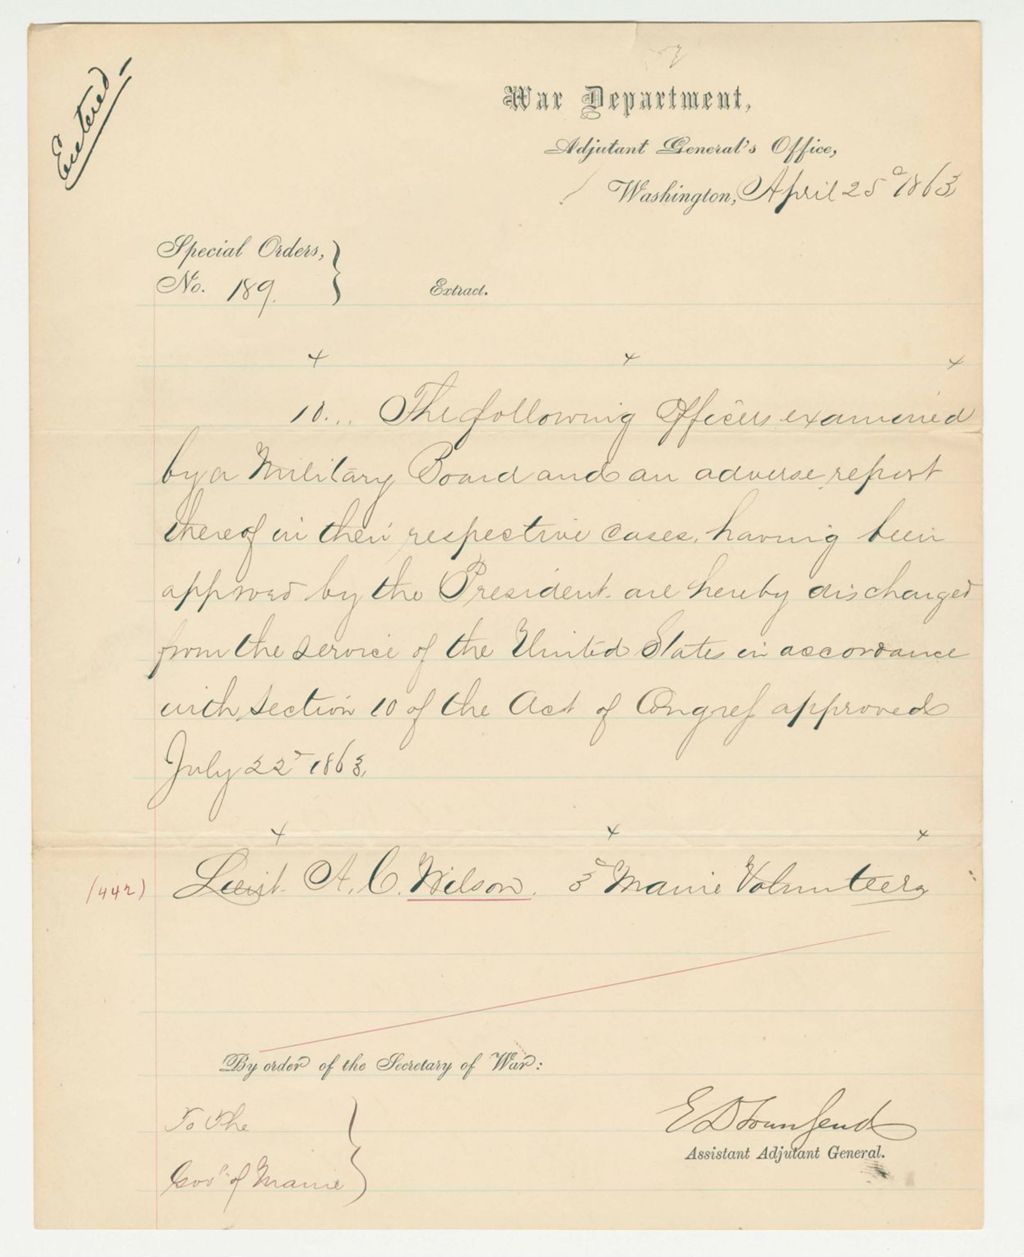 Entered -
War Department,
Adjutant General's Office,
Washington, April 25th 1863
Special Orders,
No. 189.
Extract.
x x x
10... The following Officers examined
by a Military Board and an adverse report
thereof in their respective cases, having been
approved by the President are hereby discharged
from the service of the United States in accordance
with Section 10 of the Act of Congress approved
July 22d 1863,
x x x
(442) Lieut. A. C. Wilson. 3d Maine Volunteers
By order of the Secretary of War:
To the
Gov'r of Maine
E D Townsend
Assistant Adjutant General.